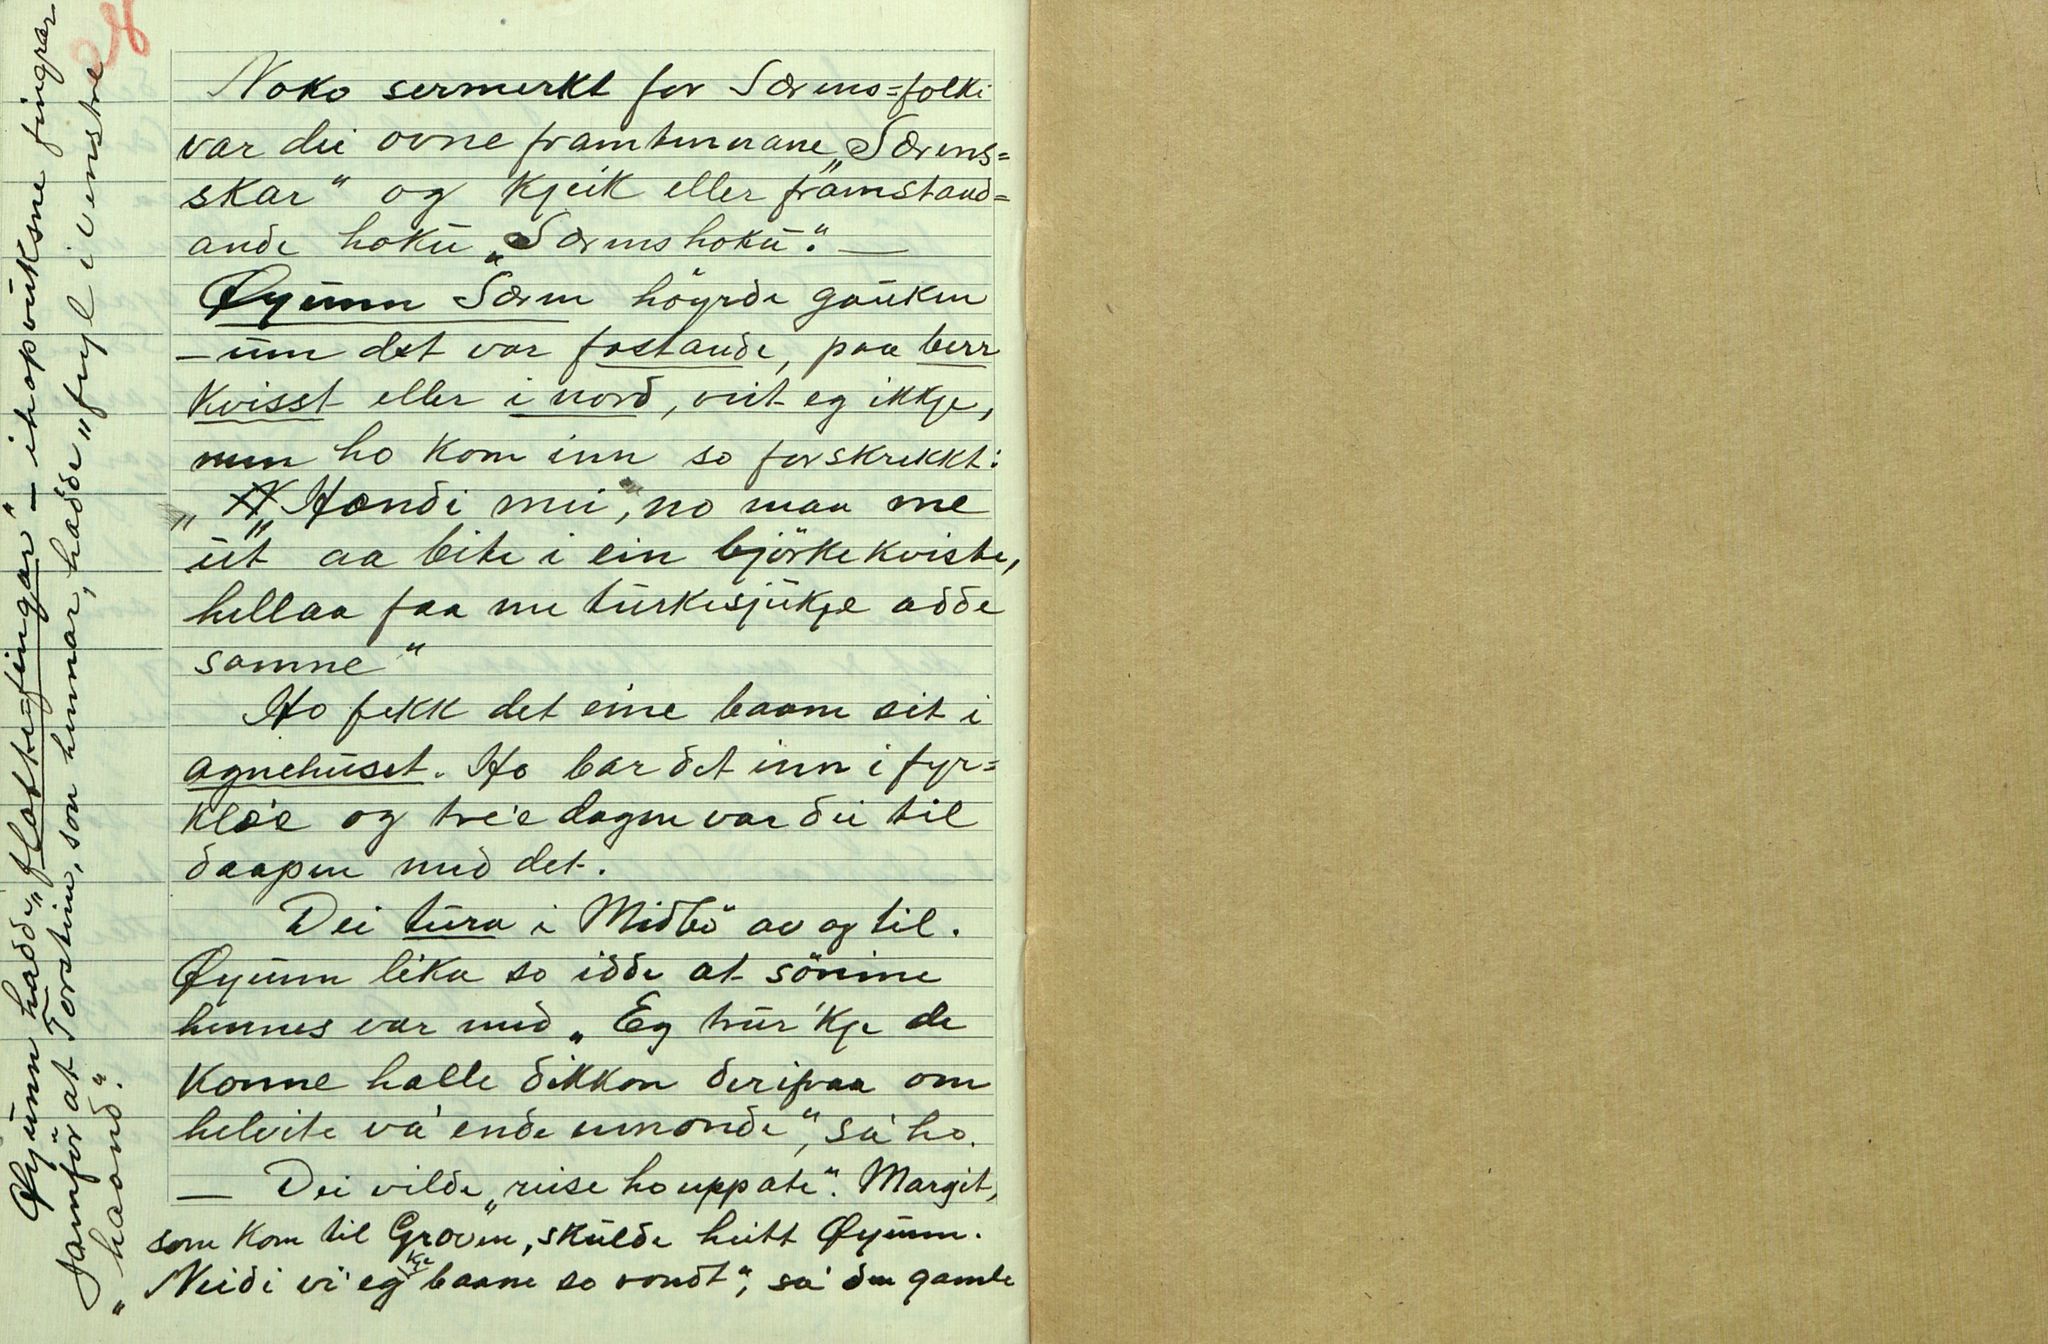 Noko sermerkt for Særens=folki
var dei ovne framtennane „Særens=
skar" og kjeik eller framstand=
ande hoku „Særenshoku". —
Øyunn Særen höyrde gauken
— um det var fastande, paa berr
kvisst eller i nord, veit eg ikkje,
men ho kom inn so forskrekkt:
„Hændi mei, no maa me
ut aa bite i ein björkekviste,
hellaa faa me turkesjukje adde
samne"
Ho fekk det eine baane sit i
agnehuset. Ho bar det inn i fyr=
klæ'e og tre'e dagen var dei til
daapen med det.
Dei tura i Midbö av og til.
Øyunn lika so idde at sönine
hennes var med „Eg trur 'kje de
konne halle dikkon deripaa om
helvite va' ende unonde", sa' ho.
— Dei vilde „reise ho uppate". Margit,
som kom til Groven, skulde heitt Øyunn.
„Neidi vi' eg kje baane so vondt", sa' den gamle
Øyunn hadde „flattefingar" — ihopvuksne fingrar
Jamför at Torstein, son hennar, hadde „fuyl i venstre
haand".
28